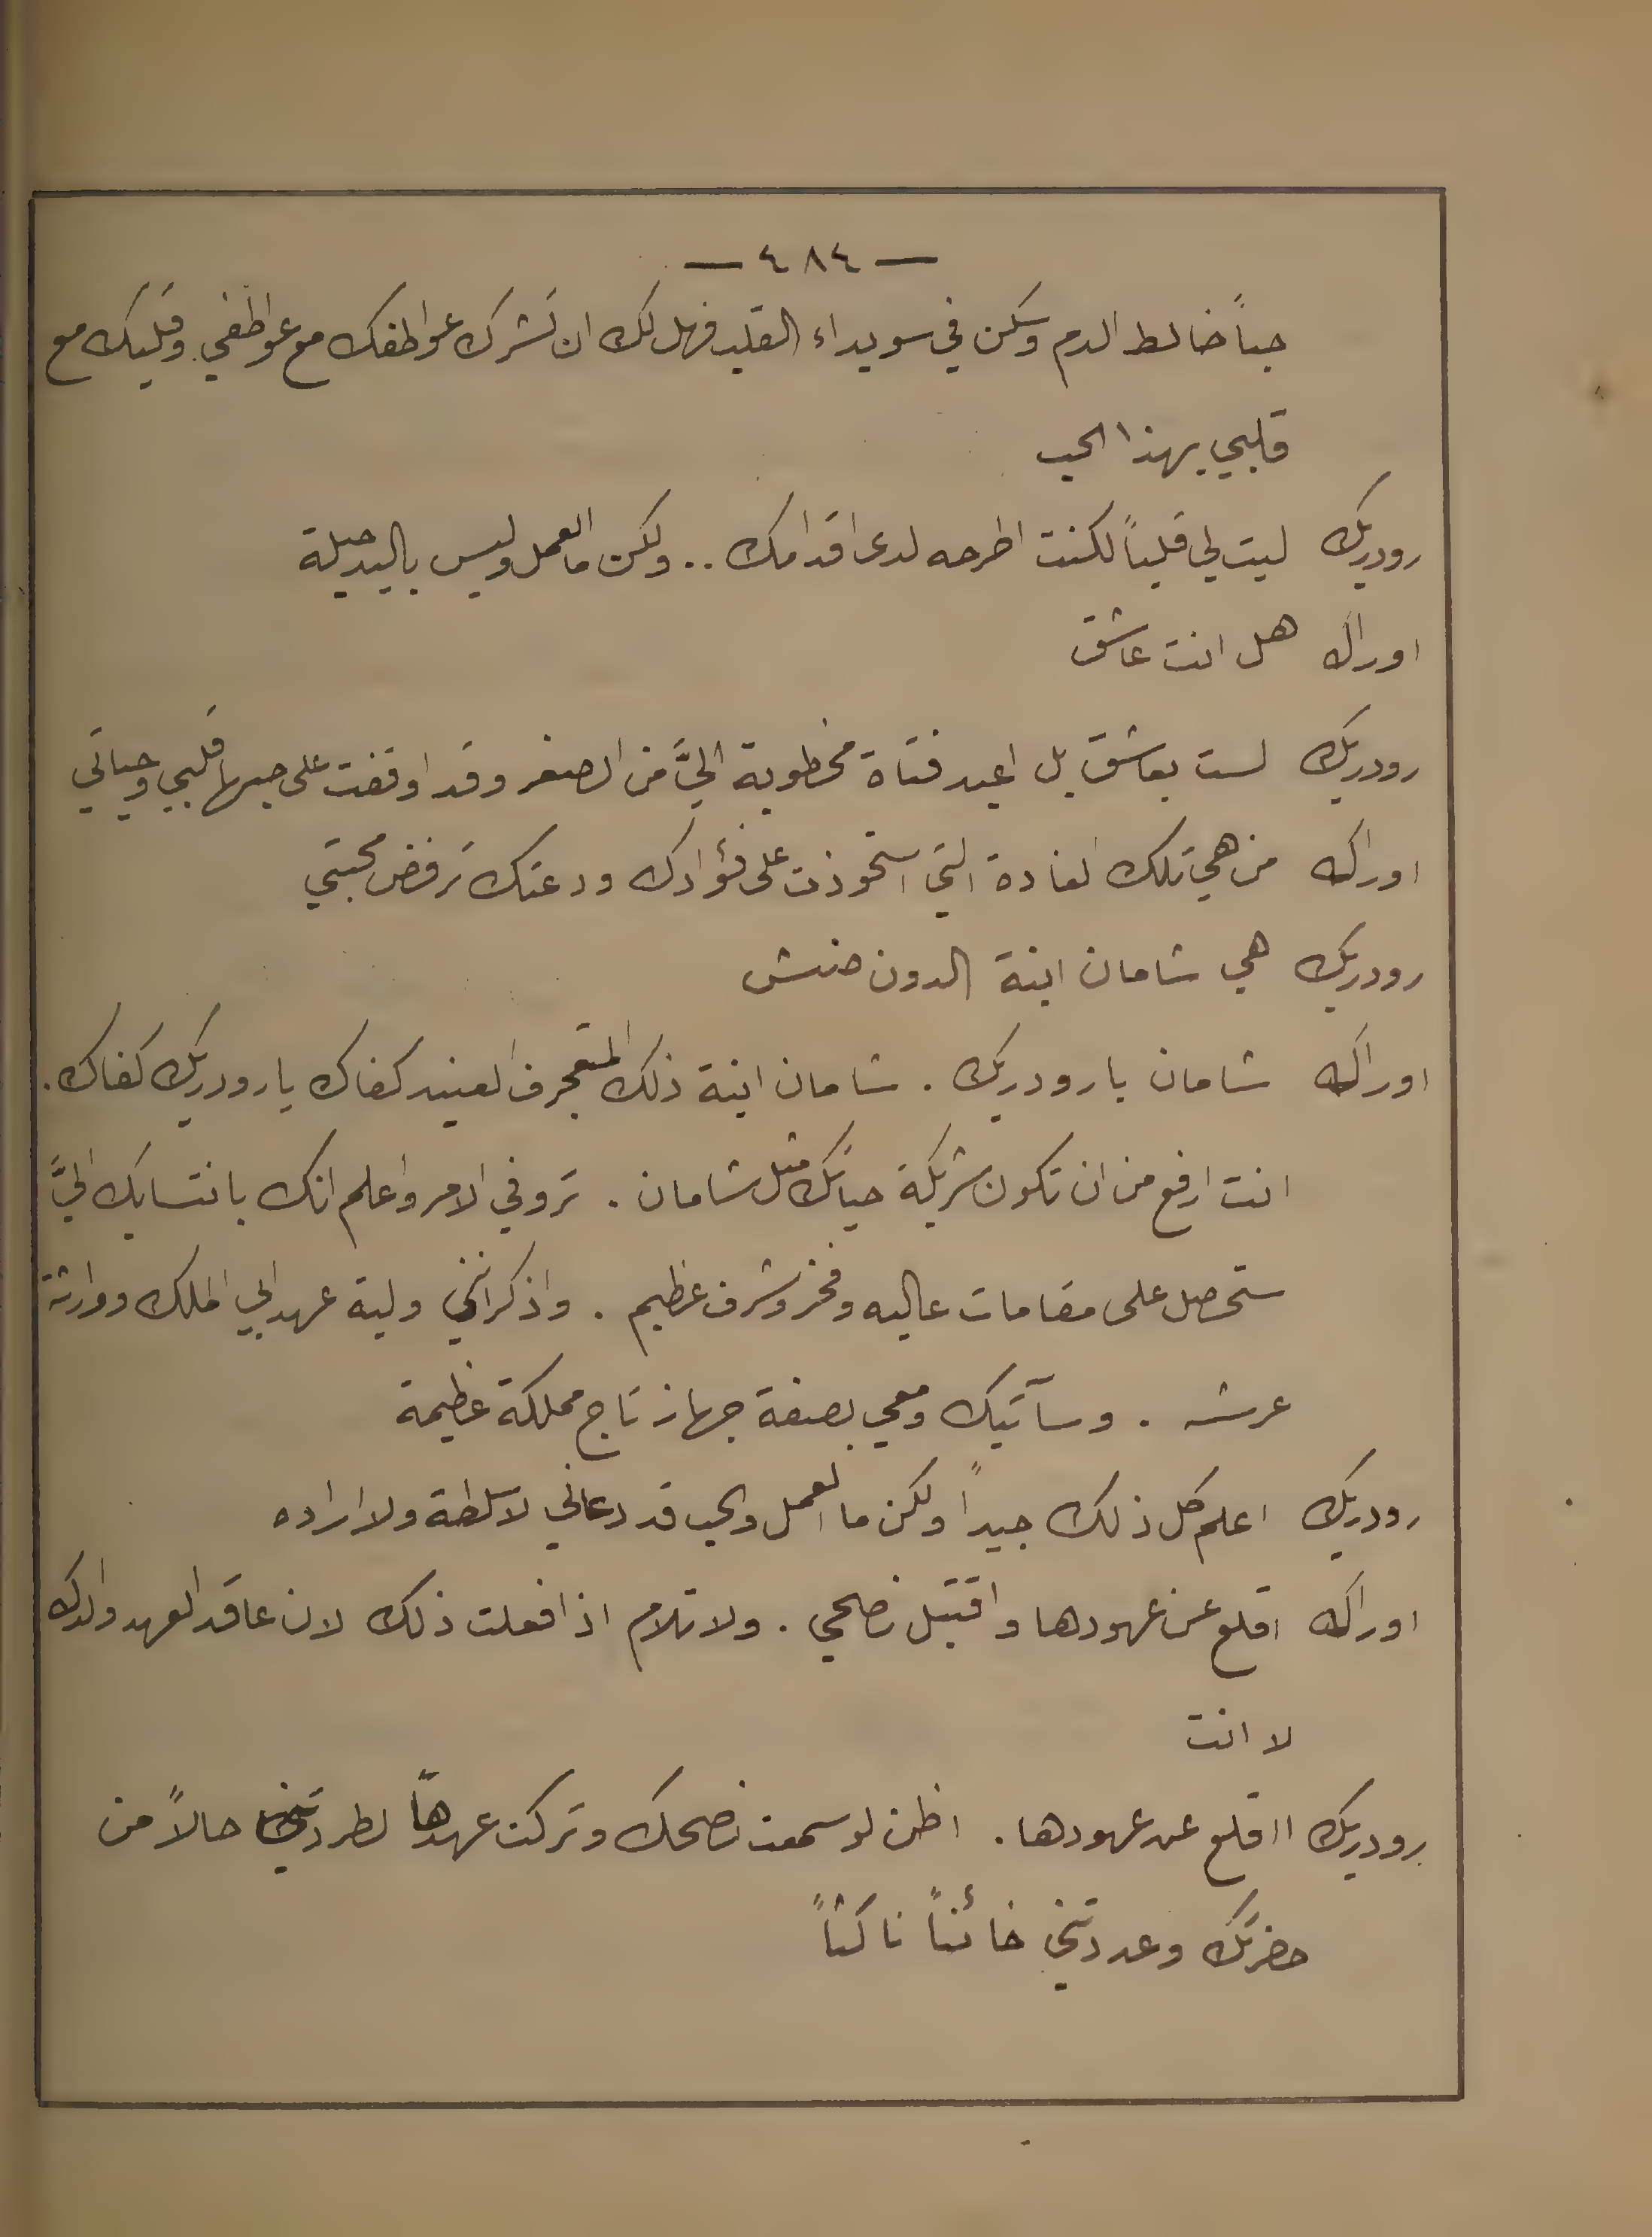 — ٤٨٤ —
حباً خالط الدم وسكن في سويداء القلب فهل لك ان تشرك عواطفك مع عواطفي وقلبك مع
قلبي بهذا الحب
رودريك ليت لي قلباً لكنت اطرحه لدى اقدامك .. ولكن ما العمل وليس باليد حيلة
اوراك هل انت عاشق
رودريك لست بعاشق بل اعبد فتاة مخطوبة اليَّ من الصغر وقد اوقفت على حبها قلبي وحياتي
اوراك من هي تلك الغادة التي استحوذت على فؤادك ودعتك ترفض محبتي
رودريك هي شامان ابنة الدون صنش
اوراك شامان يا رودريك . شامان ابنة ذلك المتعجرف العنيد كفاك يا رودريك كفاك .
انت ارفع من ان تكون شريكة حياتك مثل شامان . تروفي الامر واعلم انك بانتسابك اليَّ
ستحصل على مقامات عاليه وفخر وشرف عظيم . واذكر انني ولية عهد ابي الملك ووارثة
عرشه . وسآتيك ومعي بصفة جهاز تاج مملكة عظيمة
رودريك اعلم كل ذلك جيداً ولكن ما العمل والحب قد دعاني لا سلطة ولا اراده
اوراك اقلع عن عهودها واقتبل نصحي . ولا تلام اذا فعلت ذلك لان عاقد العهد والدك
لا انت
رودريك ااقلع عن عهودها . اظن لو سمعت نصحك وتركت عهدها لطردتني حالاً من
حضرتك وعددتني خائناً ناكثاً